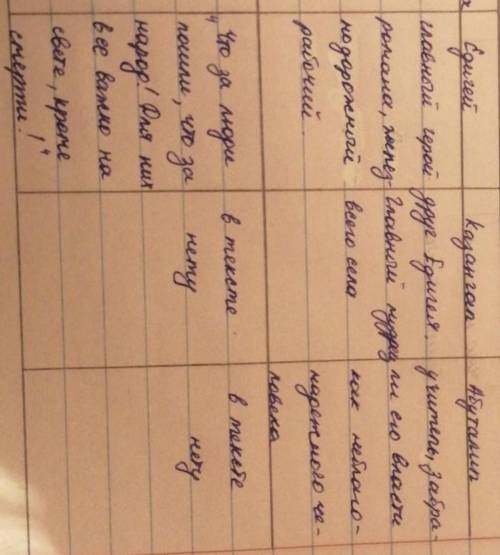 Едигей
главный герой
романа, желез-
нодорожный
рабочий.
Казангап
друг Едигея.
Главный мудрец
всего села
Абуталип
учитель, забра-
ли его власти
как неблаго-
надежного че-
ловека
"Что за люди
пошли, что за
народ! Для них
все важно на
свете, кроме
смерти!"
в тексте
нету
в тексте
нету